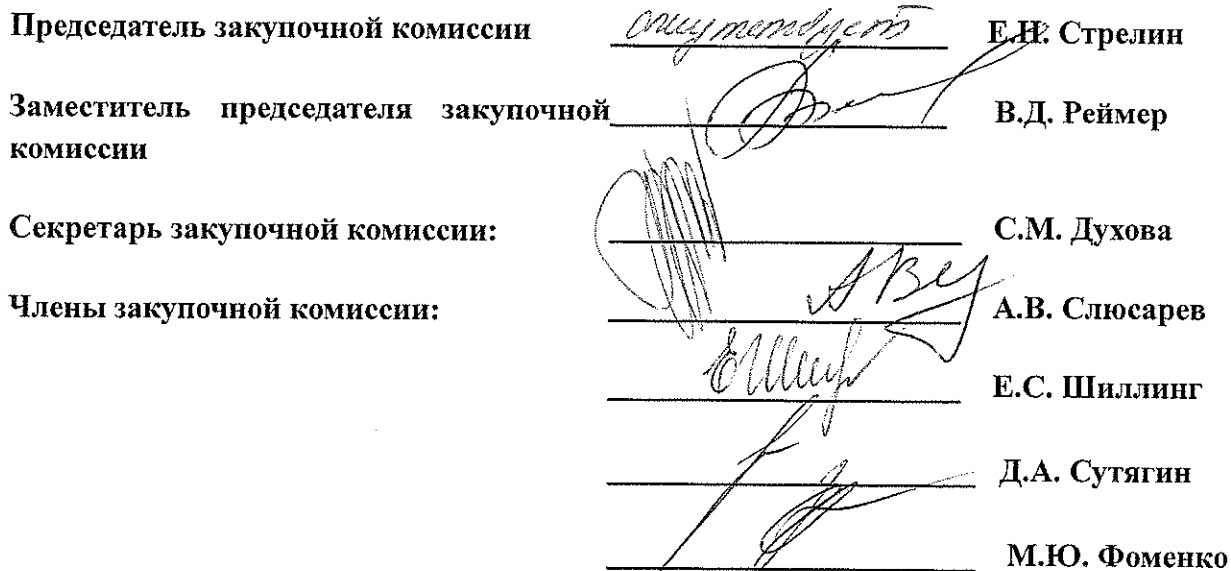 Председатель закупочной комиссии отсутствует Е.Н. Стрелин
Заместитель председателя закупочной В.Д. Реймер
комиссии
Секретарь закупочной комиссии: С.М. Духова
Члены закупочной комиссии: А.В. Слюсарев
Е.С. Шиллинг
Д.А. Сутягин
М.Ю. Фоменко